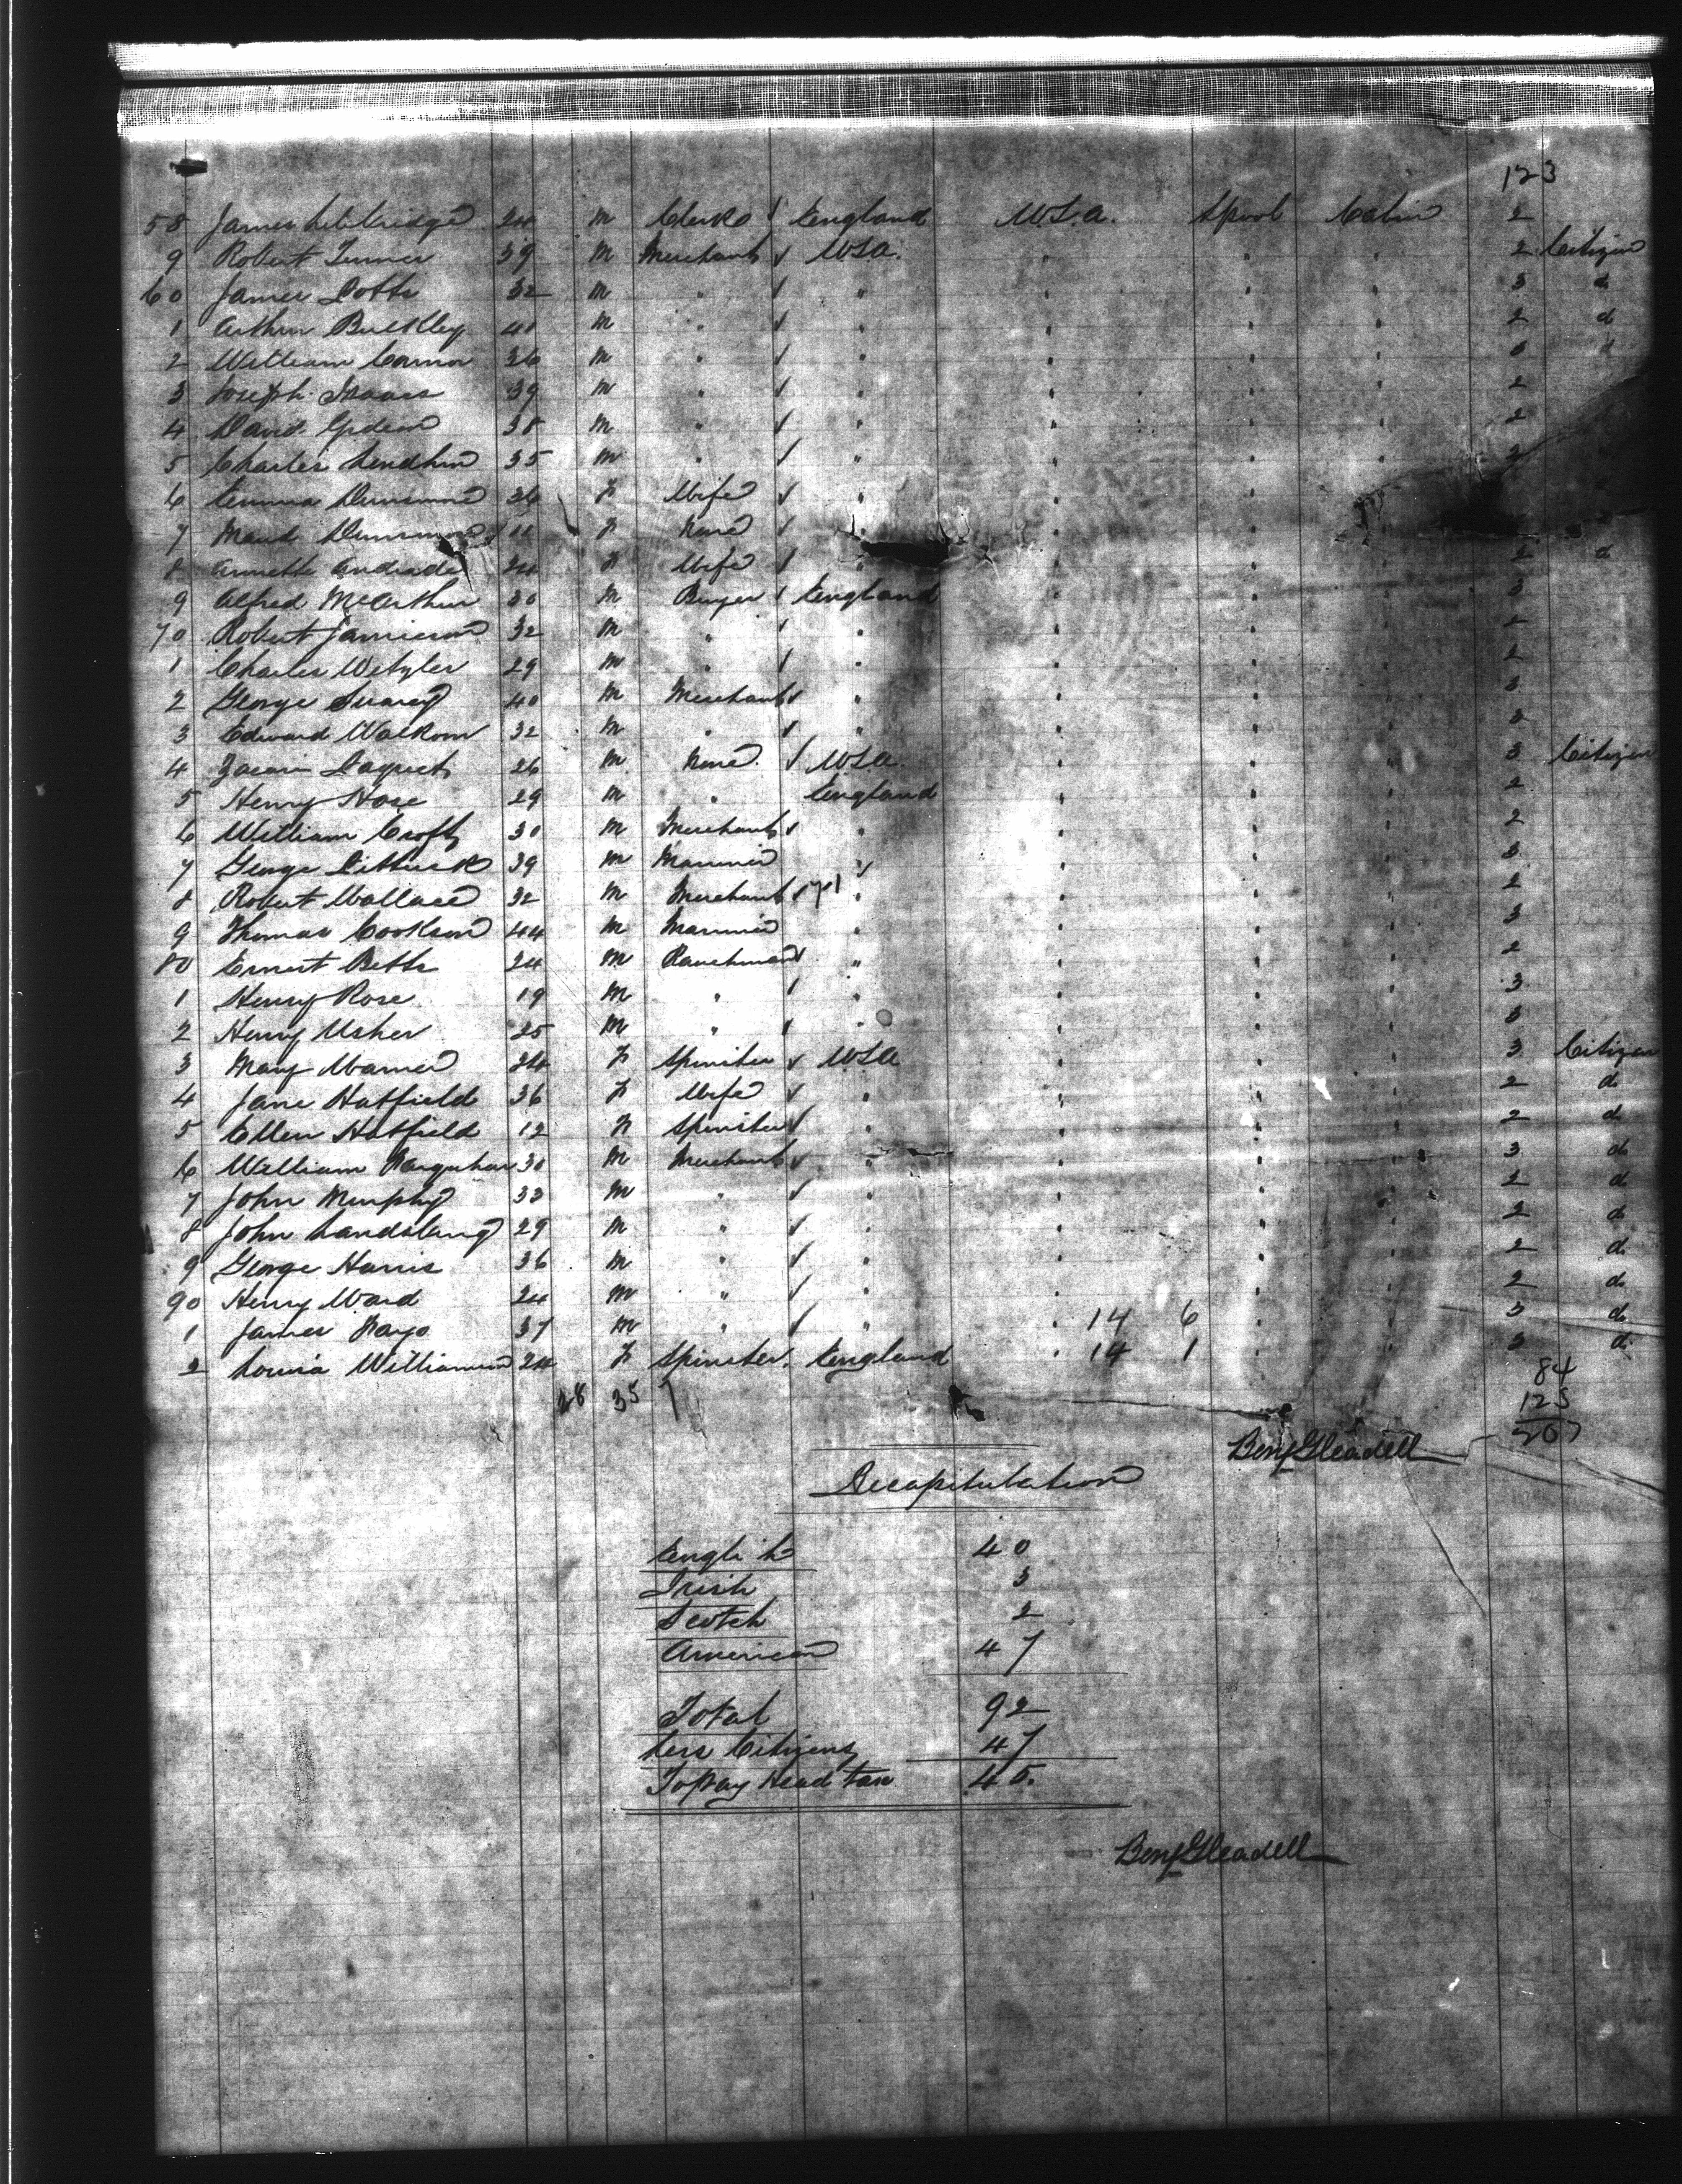 123
58 James 24 m Clerk England U.S.A. Spool Cabin 2
9 Robert Turner 39 m Merchant U.S.A. " " " 2 Citizen
60 James Potts 32 m " " " " " 3 do
1 Arthur Buckley 40 m " " " " " 2 do
2 William Connor 36 m " " " " " 3 d
3 Joseph Isaacs 39 m " " " " " 2
4 David Gideon 38 m " " " " " 2
5 Charles 35 m " " " " " 2
6 Emma Dunsmore 36 F Wife " " " "
7 Maud Dunsmore 11 F None
8 Annette Andrade 24 F Wife " " " " 2 do
9 Alfred McArthur 30 m Buyer England " " " 3
70 Robert Jamieson 32 m " " " " " 2
1 Charles Wetzler 29 m " " " " " 2
2 George 40 m Merchant " " " " 3
3 Edward Walkom 32 m " " " " " 3
4 26 m None U.S.A. " " " 3 Citizen
5 Henry Hose 29 m " England " " " 2
6 William Croft 30 m Merchant " " " " 2
7 George 39 m Mariner " " " " 3
8 Robert Wallace 32 m Merchant " " " " 2
9 Thomas Cookson 44 m Mariner " " " " 3
80 Ernest Betts 24 m Ranchman " " " " 2
1 Henry Rose 19 m " " " " " 3
2 Henry Usher 25 m " " " " " 3
3 Mary Warner 24 F Spinster U.S.A " " " 3 Citizen
4 Jane Hatfield 36 F Wife " " " " 2 do
5 Ellen Hatfield 12 F Spinster " " " " 2 do
6 William Farquhar 30 m Merchant " " " " 3 do
7 John Murphy 33 m " " " " " 2 do
8 John 29 m " " " " " 2 do
9 George Harris 36 m " " " " " 2 do
90 Henry Ward 24 m " " " " " 2 do
1 James 37 m " " " 14 6 " " 3 do
2 Louisa Williamson 24 F Spinster England " 14 1 " " 3 do
28 35 7
84
123
207
Benj Gleadell
Recapitulation
English 40
Irish 3
Scotch 2
American 47
Total 92
Less Citizens 47
To pay Head tax 45.
Benj Gleadell